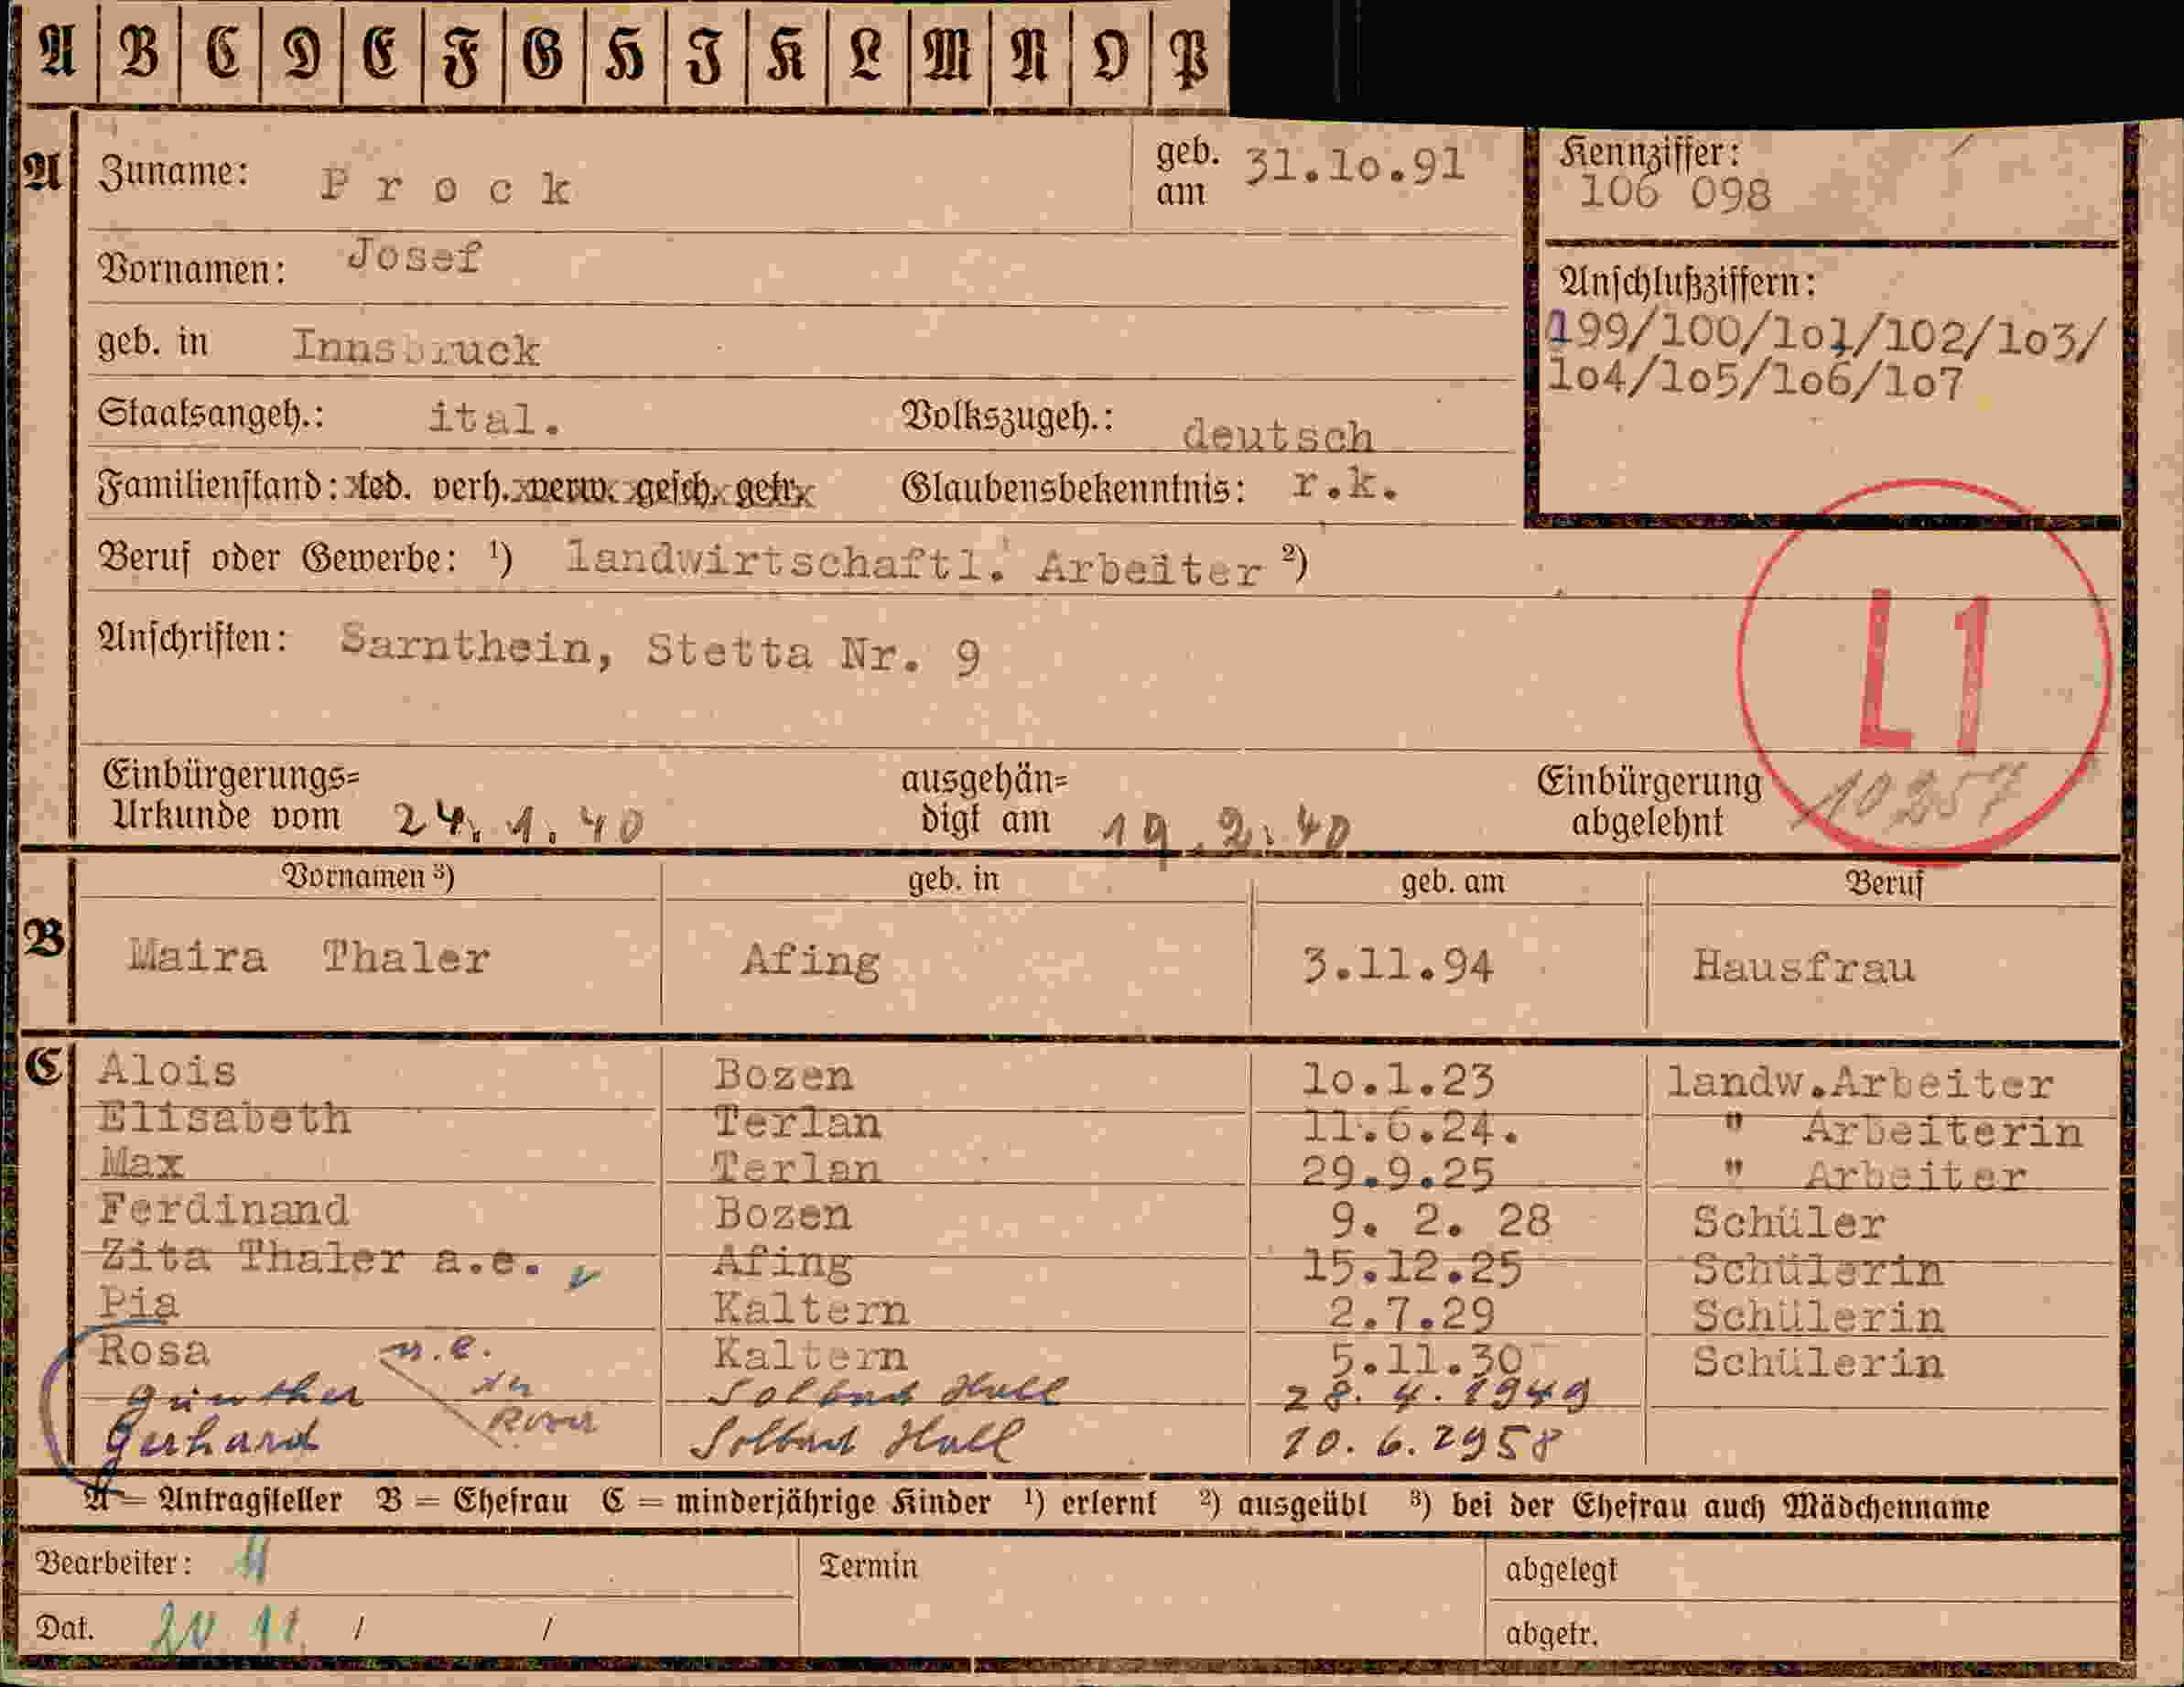 A B C D E F G H I K L M N O P
A Zuname: Prock geb. am 31.10.91
Kennziffer: 106 098
Vornamen: Josef
geb. in Innsbruck
Anschlußziffern:
199/100/101/102/103/
104/105/106/107
Staatsangeh.: ital. Volkszugeh.: deutsch
Familienstand: led. verh. verw. gesch. getr. Glaubensbekenntnis: r.k.
Beruf oder Gewerbe: ¹) landwirtschaftl. Arbeiter ²)
Anschriften: Sarnthein, Stetta Nr. 9
L1
Einbürgerungs= Urkunde vom 24. 1. 40 ausgehän= digt am 19. 2. 40 Einbürgerung abgelehnt 10257
Vornamen ³) geb. in geb. am Beruf
B Maira Thaler Afing 3.11.94 Hausfrau
C Alois Bozen 10.1.23 landw.Arbeiter
Elisabeth Terlan 11.6.24. " Arbeiterin
Max Terlan 29.9.25 " Arbeiter
Ferdinand Bozen 9. 2. 28 Schüler
Zita Thaler a.e. Afing 15.12.25 Schülerin
Pia Kaltern 2.7.29 Schülerin
Rosa Kaltern 5.11.30 Schülerin
Günther u.e. der Rosa Solbad Hall 28. 4. 1949
Gerhard Solbad Hall 10. 6. 1958
A = Antragsteller B = Ehefrau C = minderjährige Kinder ¹) erlernt ²) ausgeübt ³) bei der Ehefrau auch Mädchenname
Bearbeiter: Termin abgelegt
Dat. 20 11. / / abgetr.